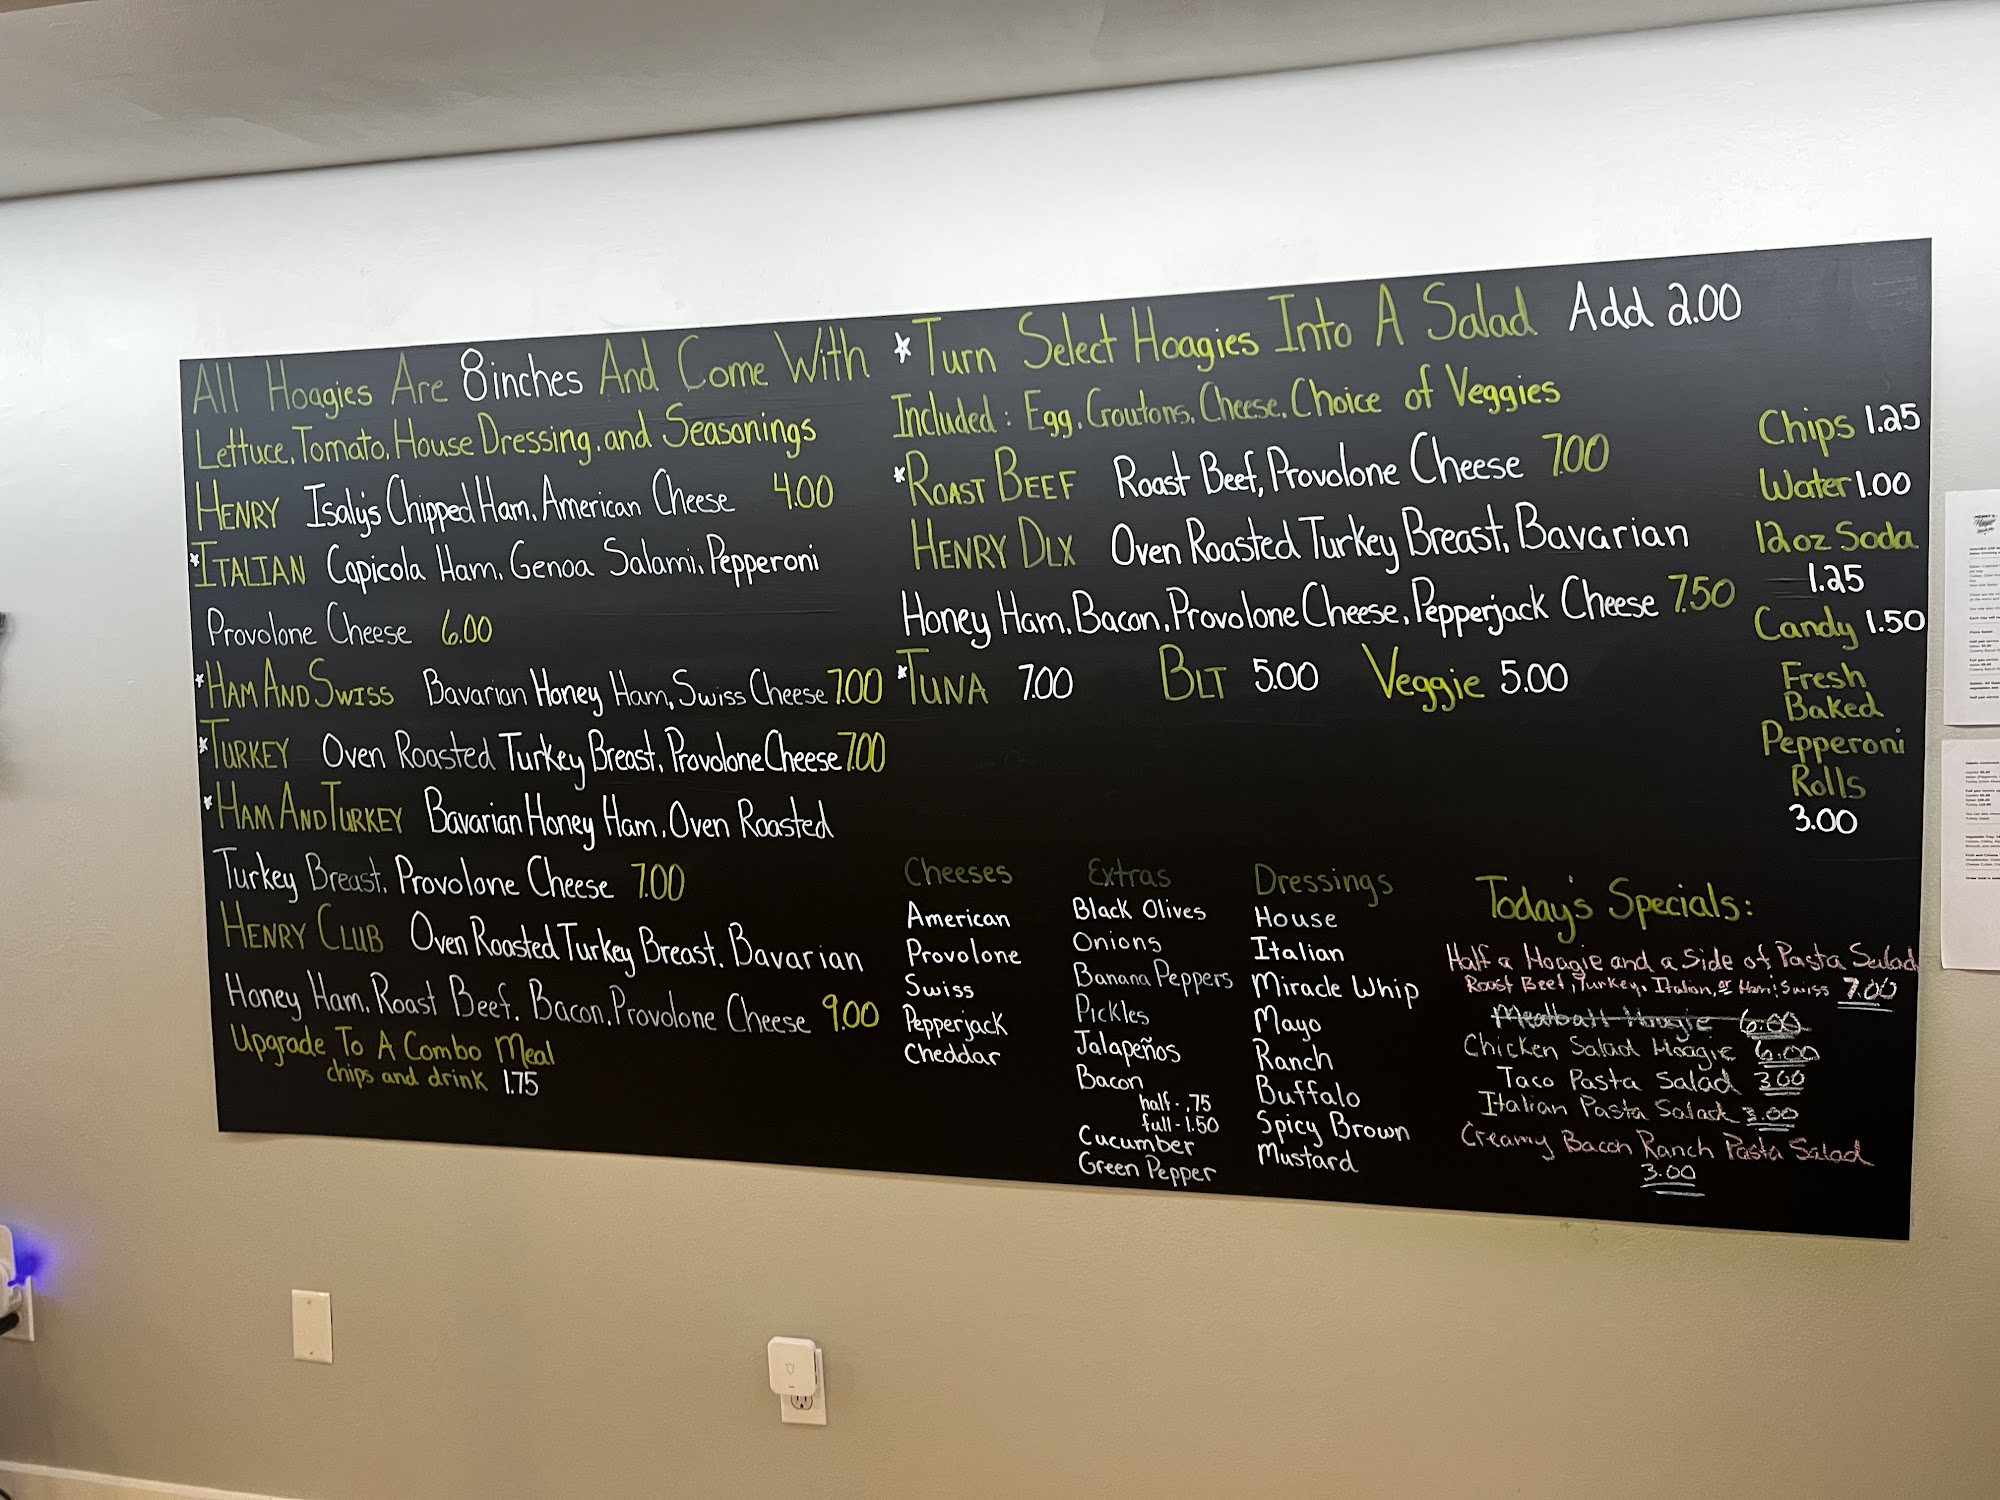 All Hoagies Are 8inches And Come With
Lettuce, Tomato, House Dressing, and Seasonings
HENRY Isaly's Chipped Ham, American Cheese 4.00
*ITALIAN Capicola Ham, Genoa Salami, Pepperoni
Provolone Cheese 6.00
*HAM AND SWISS Bavarian Honey Ham, Swiss Cheese 7.00
*TURKEY Oven Roasted Turkey Breast, Provolone Cheese 7.00
*HAM AND TURKEY Bavarian Honey Ham, Oven Roasted
Turkey Breast, Provolone Cheese 7.00
HENRY CLUB Oven Roasted Turkey Breast, Bavarian
Honey Ham, Roast Beef, Bacon, Provolone Cheese 9.00
Upgrade To A Combo Meal
chips and drink 1.75
*Turn Select Hoagies Into A Salad Add 2.00
Included: Egg, Croutons, Cheese, Choice of Veggies
*ROAST BEEF Roast Beef, Provolone Cheese 7.00
HENRY DLX Oven Roasted Turkey Breast, Bavarian
Honey Ham, Bacon, Provolone Cheese, Pepperjack Cheese 7.50
*TUNA 7.00 BLT 5.00 Veggie 5.00
Chips 1.25
Water 1.00
12oz Soda
1.25
Candy 1.50
Fresh
Baked
Pepperoni
Rolls
3.00
Cheeses
American
Provolone
Swiss
Pepperjack
Cheddar
Extras
Black Olives
Onions
Banana Peppers
Pickles
Jalapeños
Bacon
half - .75
full - 1.50
Cucumber
Green Pepper
Dressings
House
Italian
Miracle Whip
Mayo
Ranch
Buffalo
Spicy Brown
Mustard
Today's Specials:
Half a Hoagie and a Side of Pasta Salad
Roast Beef, Turkey, Italian, or Ham & Swiss 7.00
Meatball Hoagie 6.00
Chicken Salad Hoagie 6.00
Taco Pasta Salad 3.00
Italian Pasta Salad 3.00
Creamy Bacon Ranch Pasta Salad
3.00